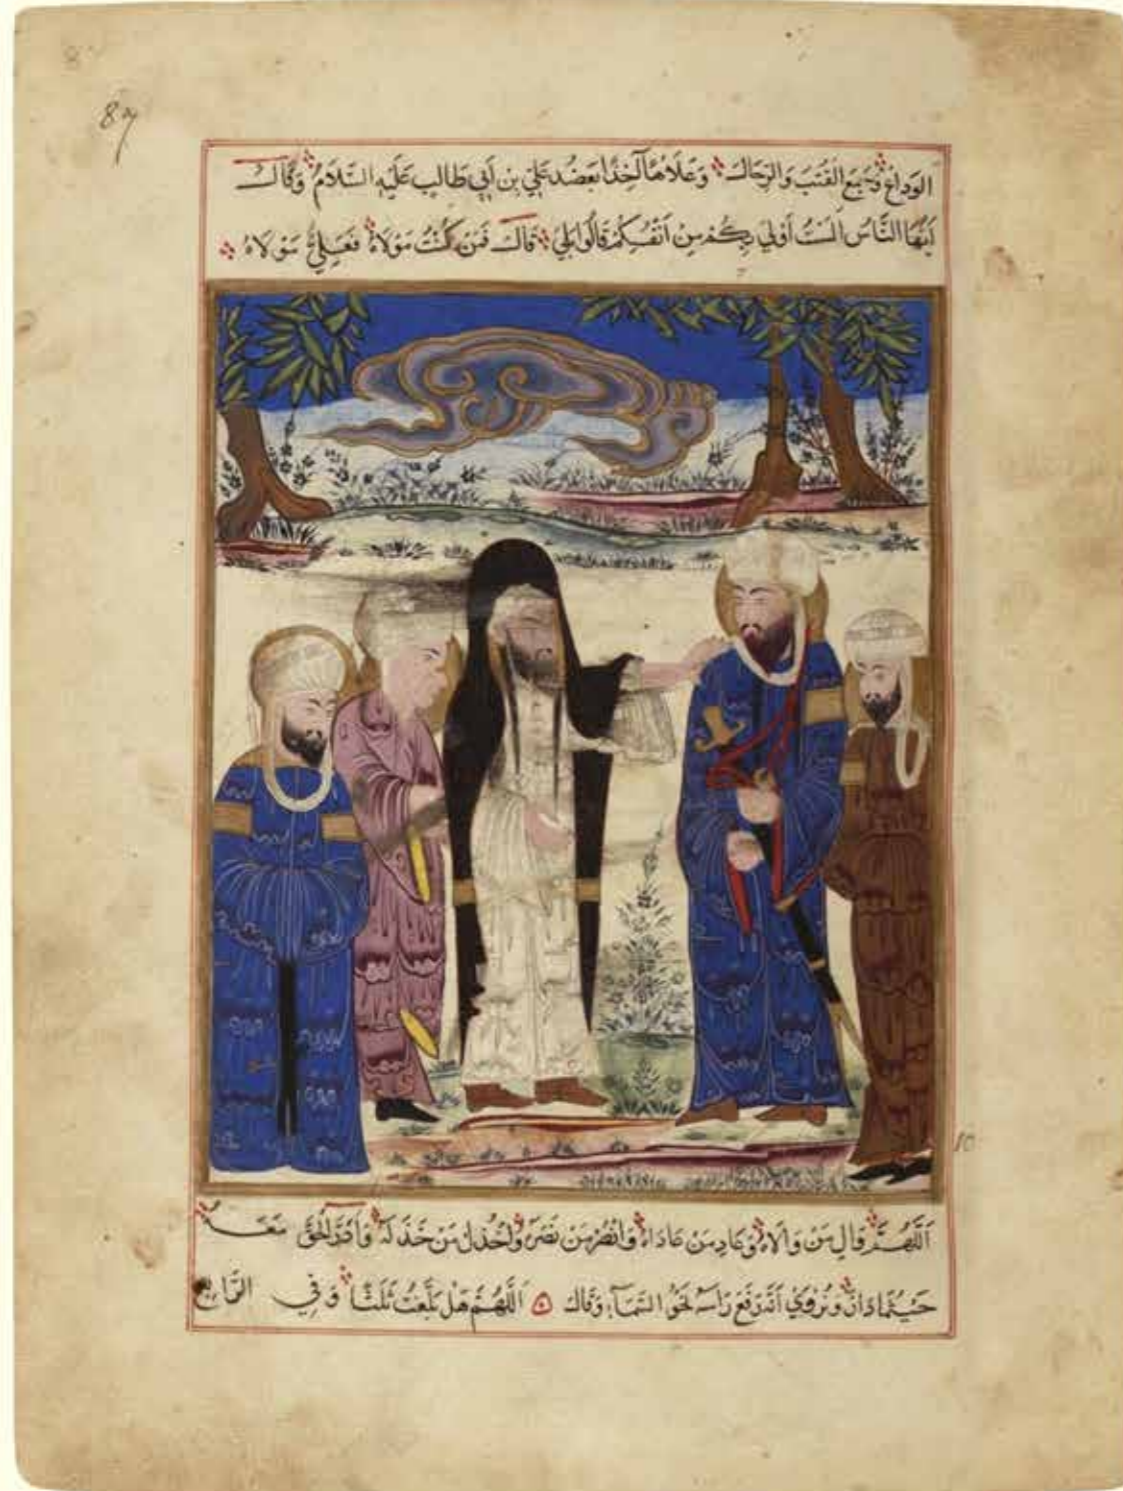 87
الوداع وجمع القتب والرحال وعلاها آخذا بعضد علي بن أبي طالب عليه السلام وقال
أيها الناس ألست أولى بكم من أنفسكم قالوا بلى قال فمن كنت مولاه فعلي مولاه
10
اللهم وال من والاه وعاد من عاداه وانصر من نصره واخذل من خذله وأدر الحق معه
حيثما دار ويروى أنه رفع رأسه نحو السماء وقال اللهم هل بلغت ثلثا وفي الرابع